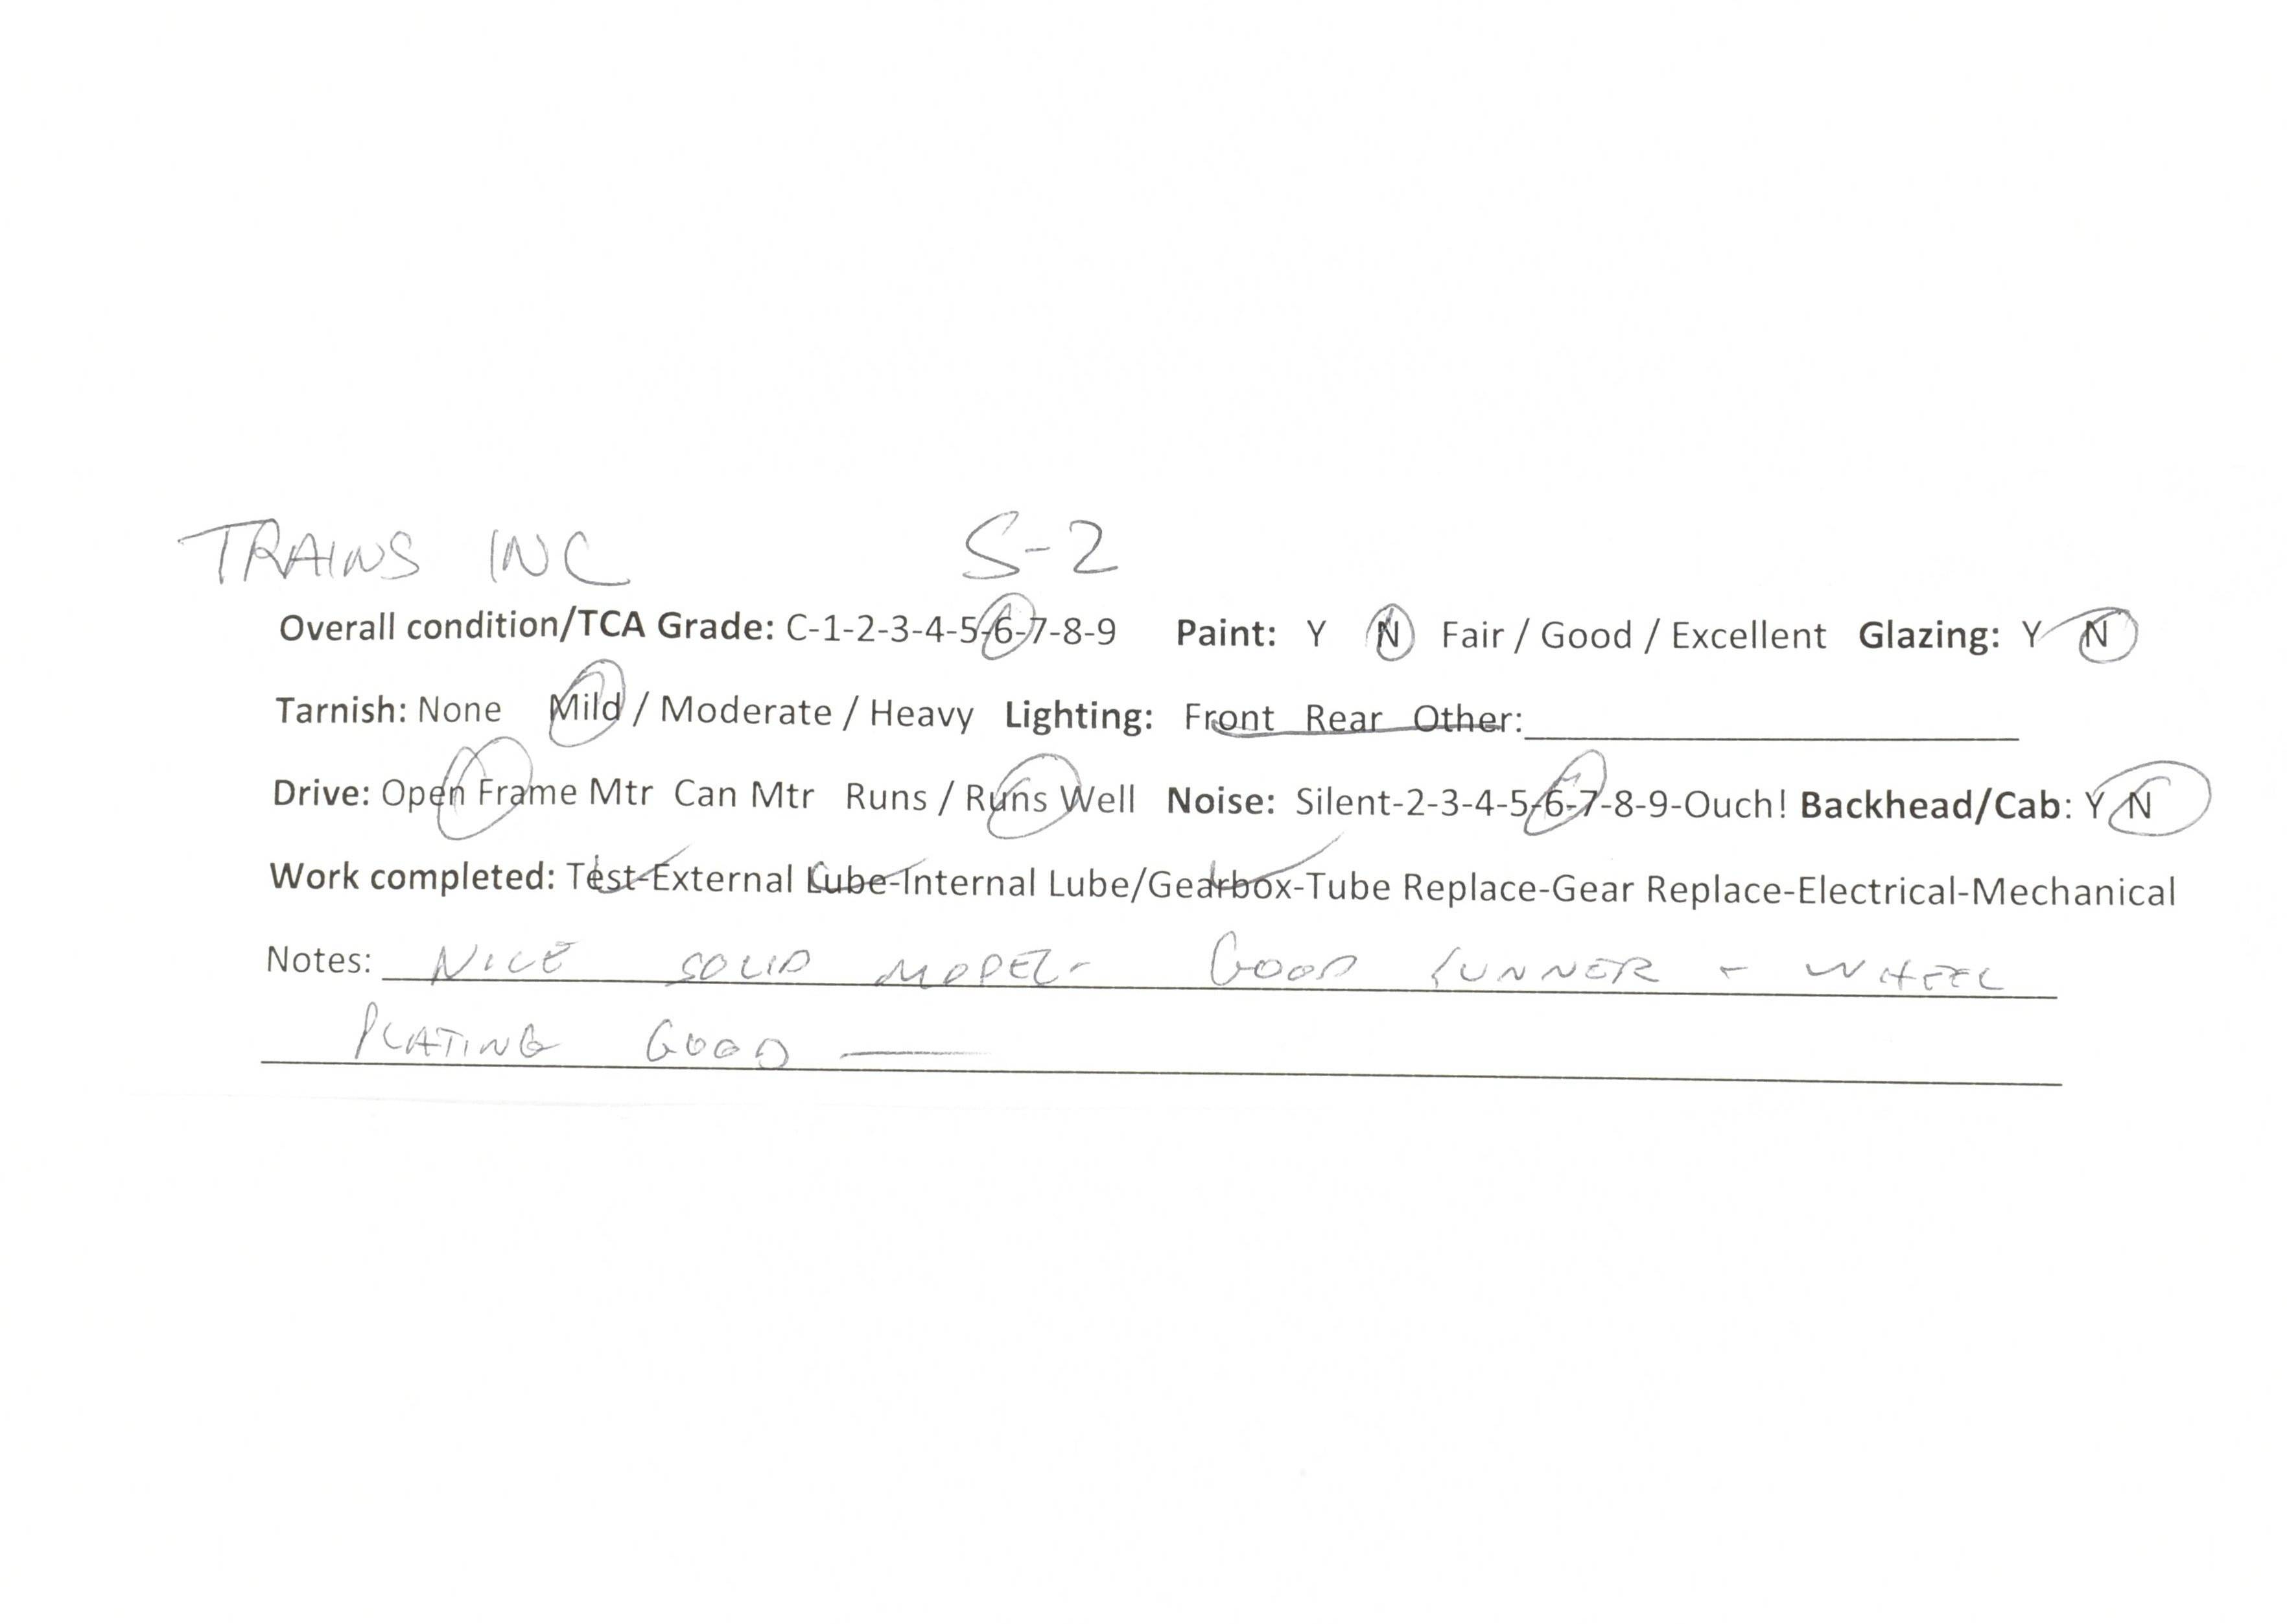 TRAINS INC S-2
Overall condition/TCA Grade: C-1-2-3-4-5-6-7-8-9 Paint: Y N Fair / Good / Excellent Glazing: Y N
Tarnish: None Mild / Moderate / Heavy Lighting: Front Rear Other:
Drive: Open Frame Mtr Can Mtr Runs / Runs Well Noise: Silent-2-3-4-5-6-7-8-9-Ouch! Backhead/Cab: Y N
Work completed: Test-External Lube-Internal Lube/Gearbox-Tube Replace-Gear Replace-Electrical-Mechanical
Notes: NICE SOLID MODEL- GOOD RUNNER - WHEEL
PLATING GOOD —